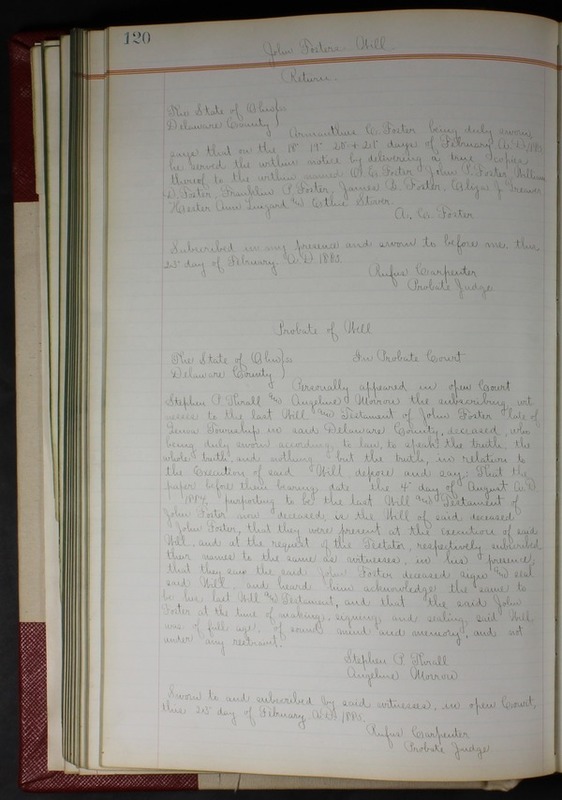 120
John Fosters Will.
Return.
The State of Ohio } ss
Delaware County }
Amanthus C. Foster being duly sworn
says that on the 18" 19" 20" & 21st days of February A.D. 1885
he served the within notice by delivering a true copies
thereof to the within named W. C. Foster, John P. Foster, William
D. Foster, Franklin P. Foster, James B. Foster, Eliza J.
Hester Ann & Esthie Stover.
A. C. Foster
Subscribed in my presence and sworn to before me this
25" day of February. A.D. 1885.
Rufus Carpenter
Probate Judge
Probate of Will
The State of Ohio } ss In Probate Court
Delaware County }
Personally appeared in open Court
Stephen P. Thrall and Angeline Morrow the subscribing wit
nesses to the last Will and Testament of John Foster late of
Genoa Township in said Delaware County, deceased, who
being duly sworn according to law, to speak the truth, the
whole truth, and nothing but the truth, in relation to
the Execution of said Will depose and say: That the
paper before them bearing date the 4" day of August A.D.
1884, purporting to be the last Will and Testament of
John Foster now deceased, is the Will of said deceased
John Foster, that they were present at the execution of said
Will, and at the request of the Testator, respectively subscribed
their names to the same as witnesses, in his presence;
that they saw the said John Foster deceased sign and seal
said Will, and heard him acknowledge the same to
be his last Will and Testament, and that the said John
Foster at the time of making, signing and sealing said Will
was of full age, of sound mind and memory, and not
under any restraint.
Stephen P. Thrall
Angeline Morrow
Sworn to and subscribed by said witnesses, in open Court,
this 25" day of February, A.D. 1885.
Rufus Carpenter
Probate Judge